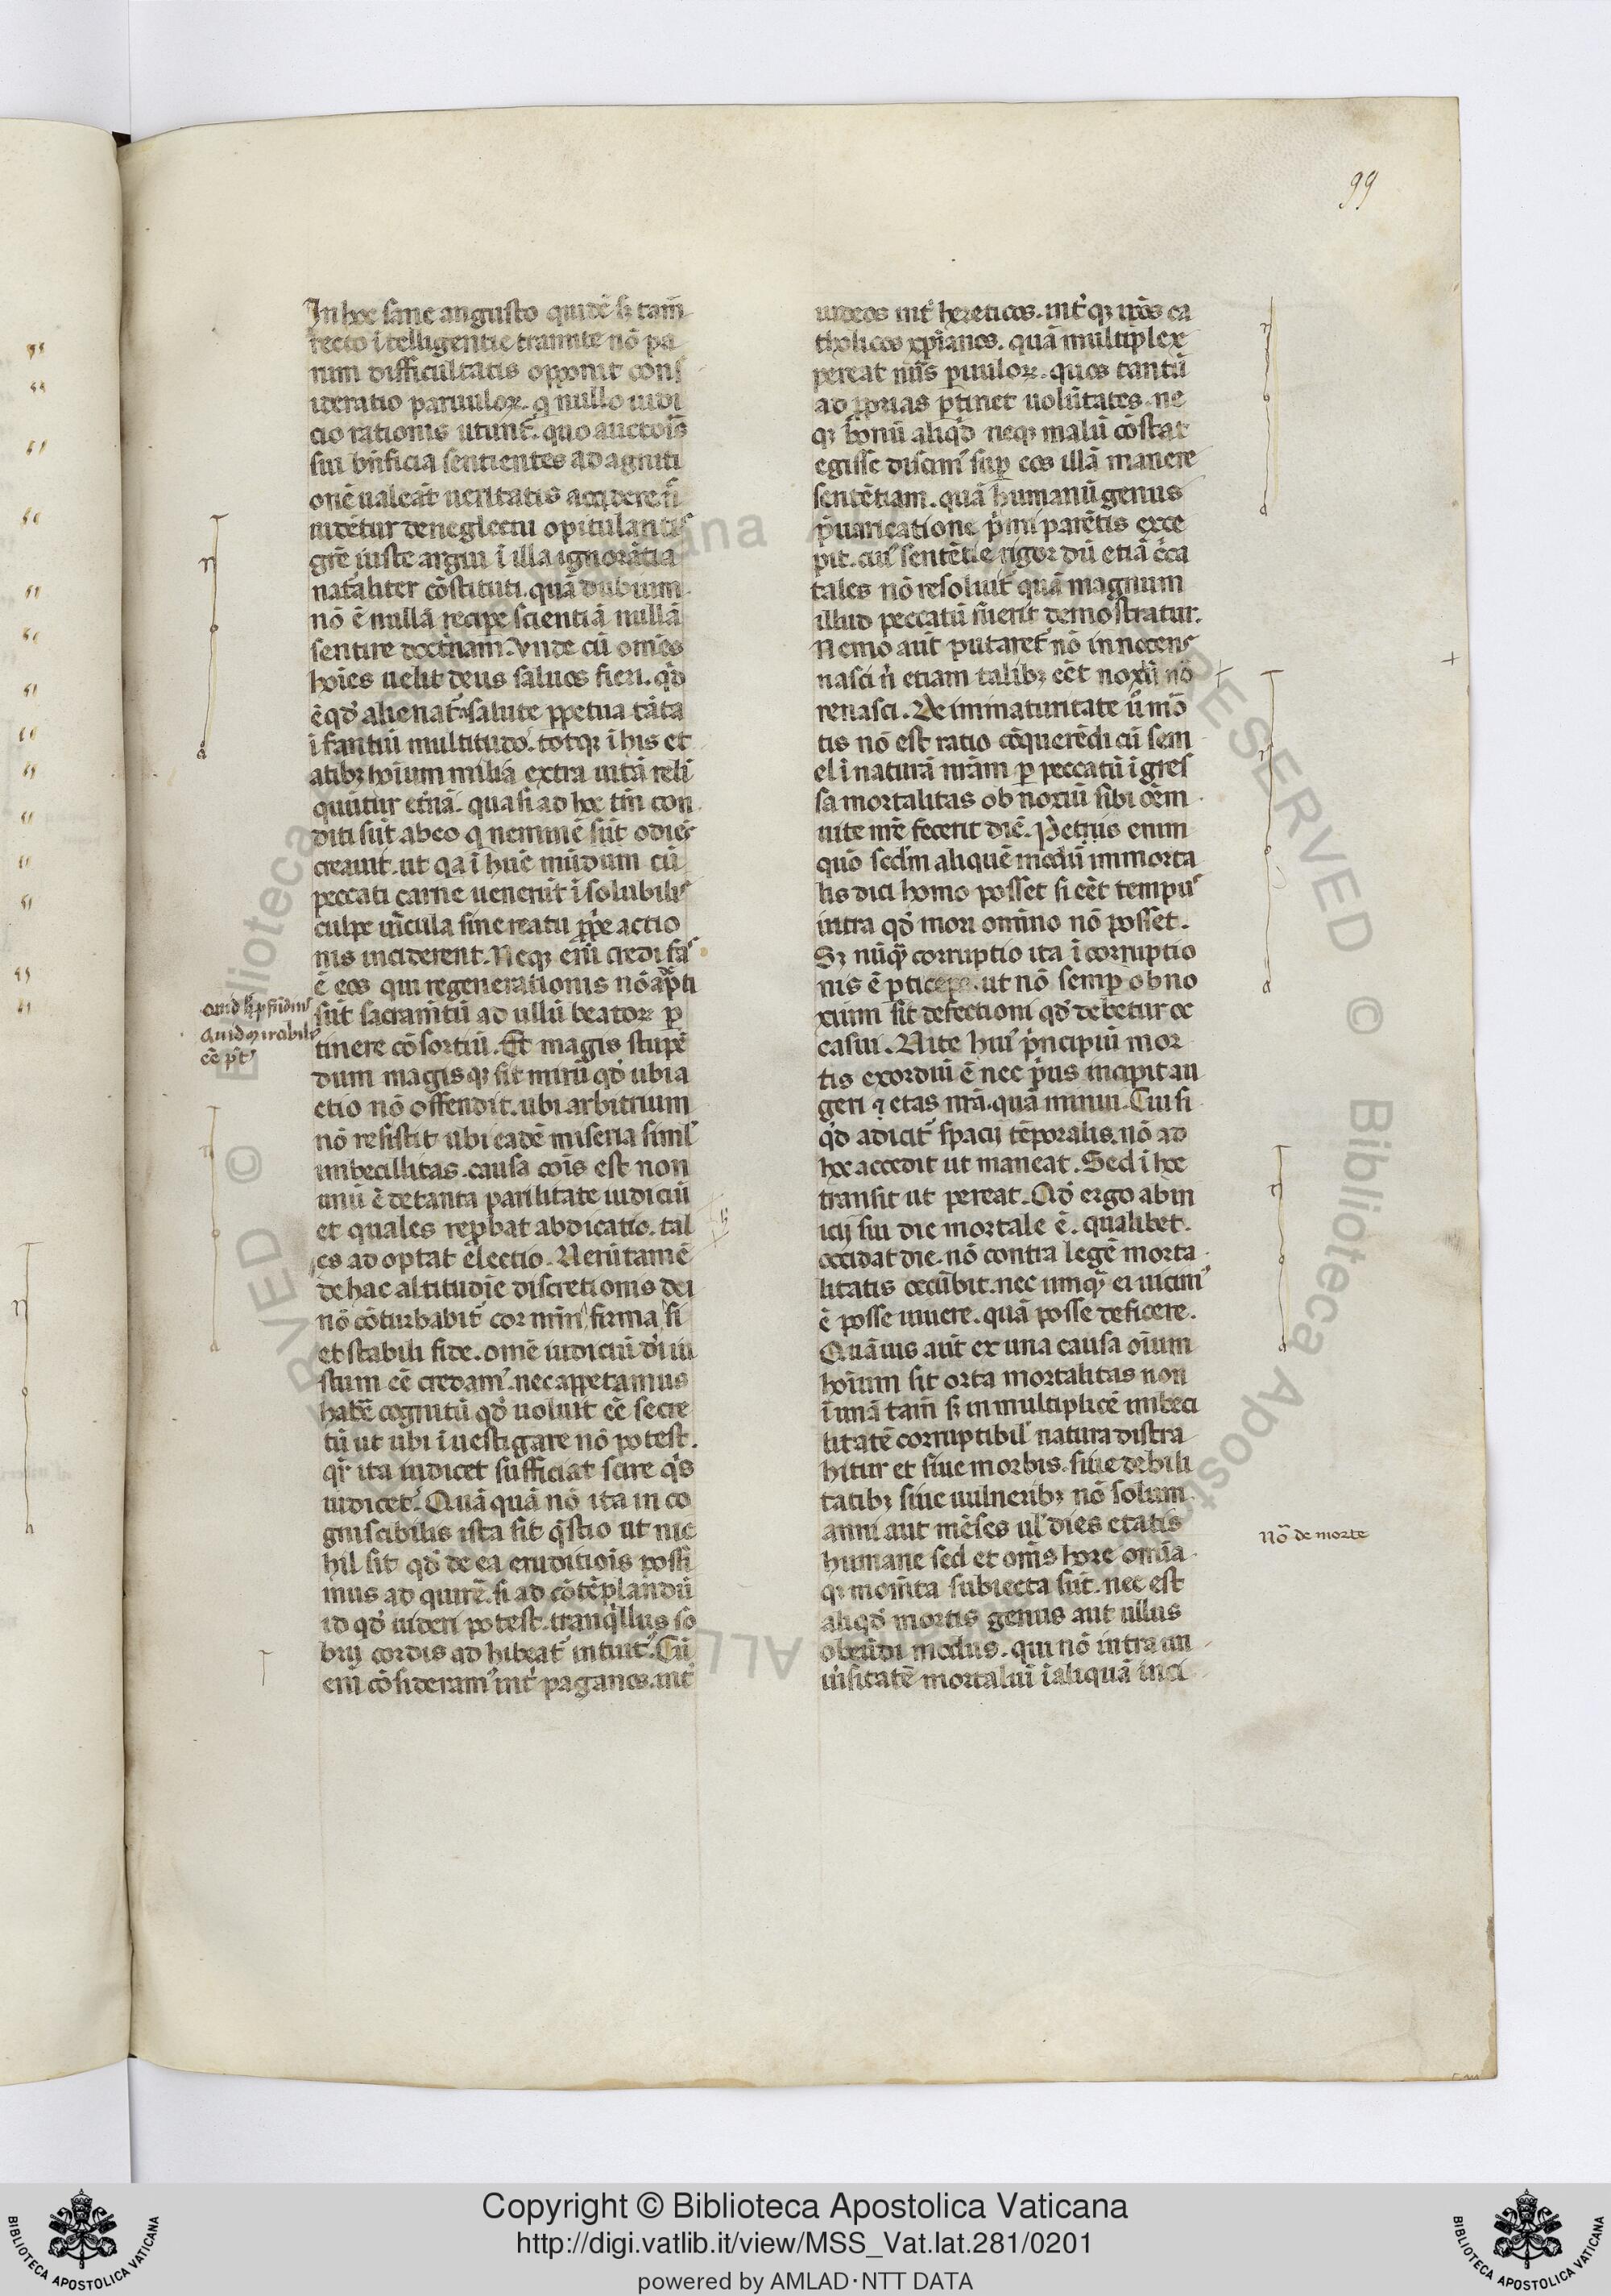 99
In hoc sane angusto quidē sꝫ tam̄
recto ītelligentie tramite nō pa
rum difficultatis opponit cons
ideratio paruuloꝝ. q̄ nullo iudi
cio rationis utunt̄. quo auctoris
sui bn̄ficia sentientes ad agniti
onē ualeāt ueritatis accedere n̄
uidētur de neglectu opitulantis
gr̄e iuste argui ī illa ignorātia
nat̄aliter cōstituti. quā dubium
nō ē nullā recipe scientiā nullā
sentire doct̄nam. Vnde cū omēs
hoīes uelit deus saluos fieri. qd̄
ē qd̄ alienat̄ a salute ꝑpetua tāta
īfantiū multitudo. totqꝫ ī his et
atibꝫ hoīum milia extra uitā reli
quūtur et̄nā. quasi ad hoc tm̄ con
diti sūt ab eo q̄ neminē
creauit. ut qa ī hūc mūdum cū
peccati carne uenerūt īsolubilis
culpe uīcula sine reatu ꝓp̄e actio
nis inciderent. Neqꝫ enī credi fas
ē eos qui regenerationis nō adepti
sūt sacram̄tū ad ullū beatoꝝ ꝑ
tinere cōsortiū. Et magis stupē
dum magisqꝫ sit mirū qd̄ ubi a
ctio nō offendit. ubi arbitrium
nō resistit ubi eadē miseria simil̄
imbecillitas. causa cōis est non
unū ē de tanta parilitate iudiciū
et quales rep̄bat abdicatio. tal
es adoptat electio. Verūtamē
de hac altitudīe discretionis dei
nō cōturbabit̄ cor nr̄m firma si
et stabili fide. omē iudiciū dī iu
stum eē credam̄. nec appetamus
habē cognitū qd̄ uoluit eē secre
tū ut ubi īuestigare nō potest.
qr̄ ita iudicet sufficiat scire q̄s
iudicet. Quāquā nō ita in co
gniscibilis ista sit q̄stio ut nic
hil sit qd̄ de ea eruditiōis possi
mus adquirē. si ad cōtēplandū
id qd̄ uideri potest. tranq̄llus so
brij cordis adhibeat̄ intuit̄. Cū
enī cōsideram̄ int̄ paganos. int̄
iudeos int̄ hereticos. int̄qꝫ ip̄os ca
tholicos xp̄ianos. quā multiplex
pereat nūs ꝑuuloꝝ. quos tantū
ad ꝓprias ꝑtinet uolūtates. ne
qꝫ bonū aliqd̄ neqꝫ malū cōstat
egisse discim̄ suꝑ eos illā manere
sentētiam. quā humanū genus
p̄uaricatione p̄mi parētis exce
pit. cuī sentētie rigor dū etiā c̄ca
tales nō resoluit̄ quā magnum
illud peccatū fuerit demostratur.
Nemo aūt putaret̄ nō innocens
nasci n̄ etiam talibꝫ eēt noxiū nō
renasci. De immaturitate ū mō
tis nō est ratio cōquerēdi cū sem
el ī naturā nr̄am ꝑ peccatū īgres
sa mortalitas obnoxiū sibi oēm
uite nr̄e fecerit diē. Petrus enim
quō sedm aliquē modū immorta
lis dici homo posset si eēt tempus
intra qd̄ mori omīno nō posset.
Sꝫ nūqꝫ corruptio ita ī corruptio
nis ē ꝑticeps. ut nō semꝑ obno
xium sit defectioni qd̄ debetur oc
casui. Vite huī p̄ncipiū mor
tis exordiū ē nec p̄us incipit au
geri etas nr̄a. quā minui. Cui si
qd̄ adicit̄ spacij tēporalis. nō ad
hoc accedit ut maneat. Sed ī hoc
transit ut pereat. Qd̄ ergo ab in
icij sui die mortale ē. qualibet
occidat die. nō contra legē morta
litatis occūbit. nec umqꝫ ei uicinī
ē posse uiuere. quā posse deficere.
Quāuis aūt ex una causa oīum
hoīum sit orta mortalitas non
ī unā tam̄ sꝫ in multiplicē imbeci
litatē corruptibil̄ natura distra
hitur et siue morbis. siue debili
tatibꝫ siue uulneribꝫ nō solum
anni aut mēses ul̄ dies etatis
humane sed et om̄s hore omīa
qꝫ mom̄ta subiecta sūt. nec est
aliqd̄ mortis genus aut ullus
obeūdi modus. qui nō intra un
iūsitatē mortaliū ī aliquā inci
eē pt̄
No de morte
Copyright © Biblioteca Apostolica Vaticana
http://digi.vatlib.it/view/MSS_Vat.lat.281/0201
powered by AMLAD·NTT DATA
BIBLIOTECA APOSTOLICA VATICANA
BIBLIOTECA APOSTOLICA VATICANA